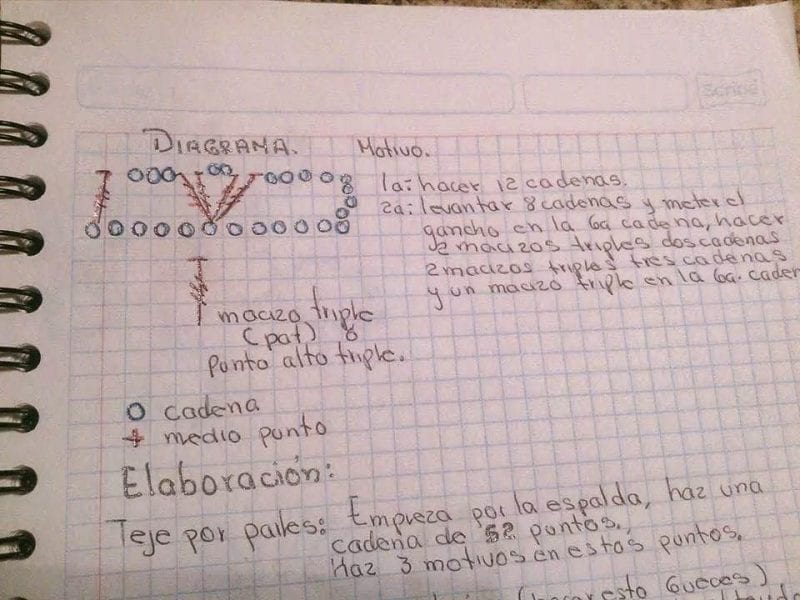 Scribe
DIAGRAMA. Motivo.
1a: hacer 12 cadenas.
2a: levantar 8 cadenas y meter el
gancho en la 6a cadena, hacer
2 macizos triples dos cadenas
2 macizos triples tres cadenas
y un macizo triple en la 6a. caden
macizo triple
(pat) ó
punto alto triple.
cadena
medio punto
Elaboración:
Teje por partes: Empieza por la espalda, haz una
cadena de 52 puntos.
Haz 3 motivos en estos puntos.
(hacer esto 6 veces)